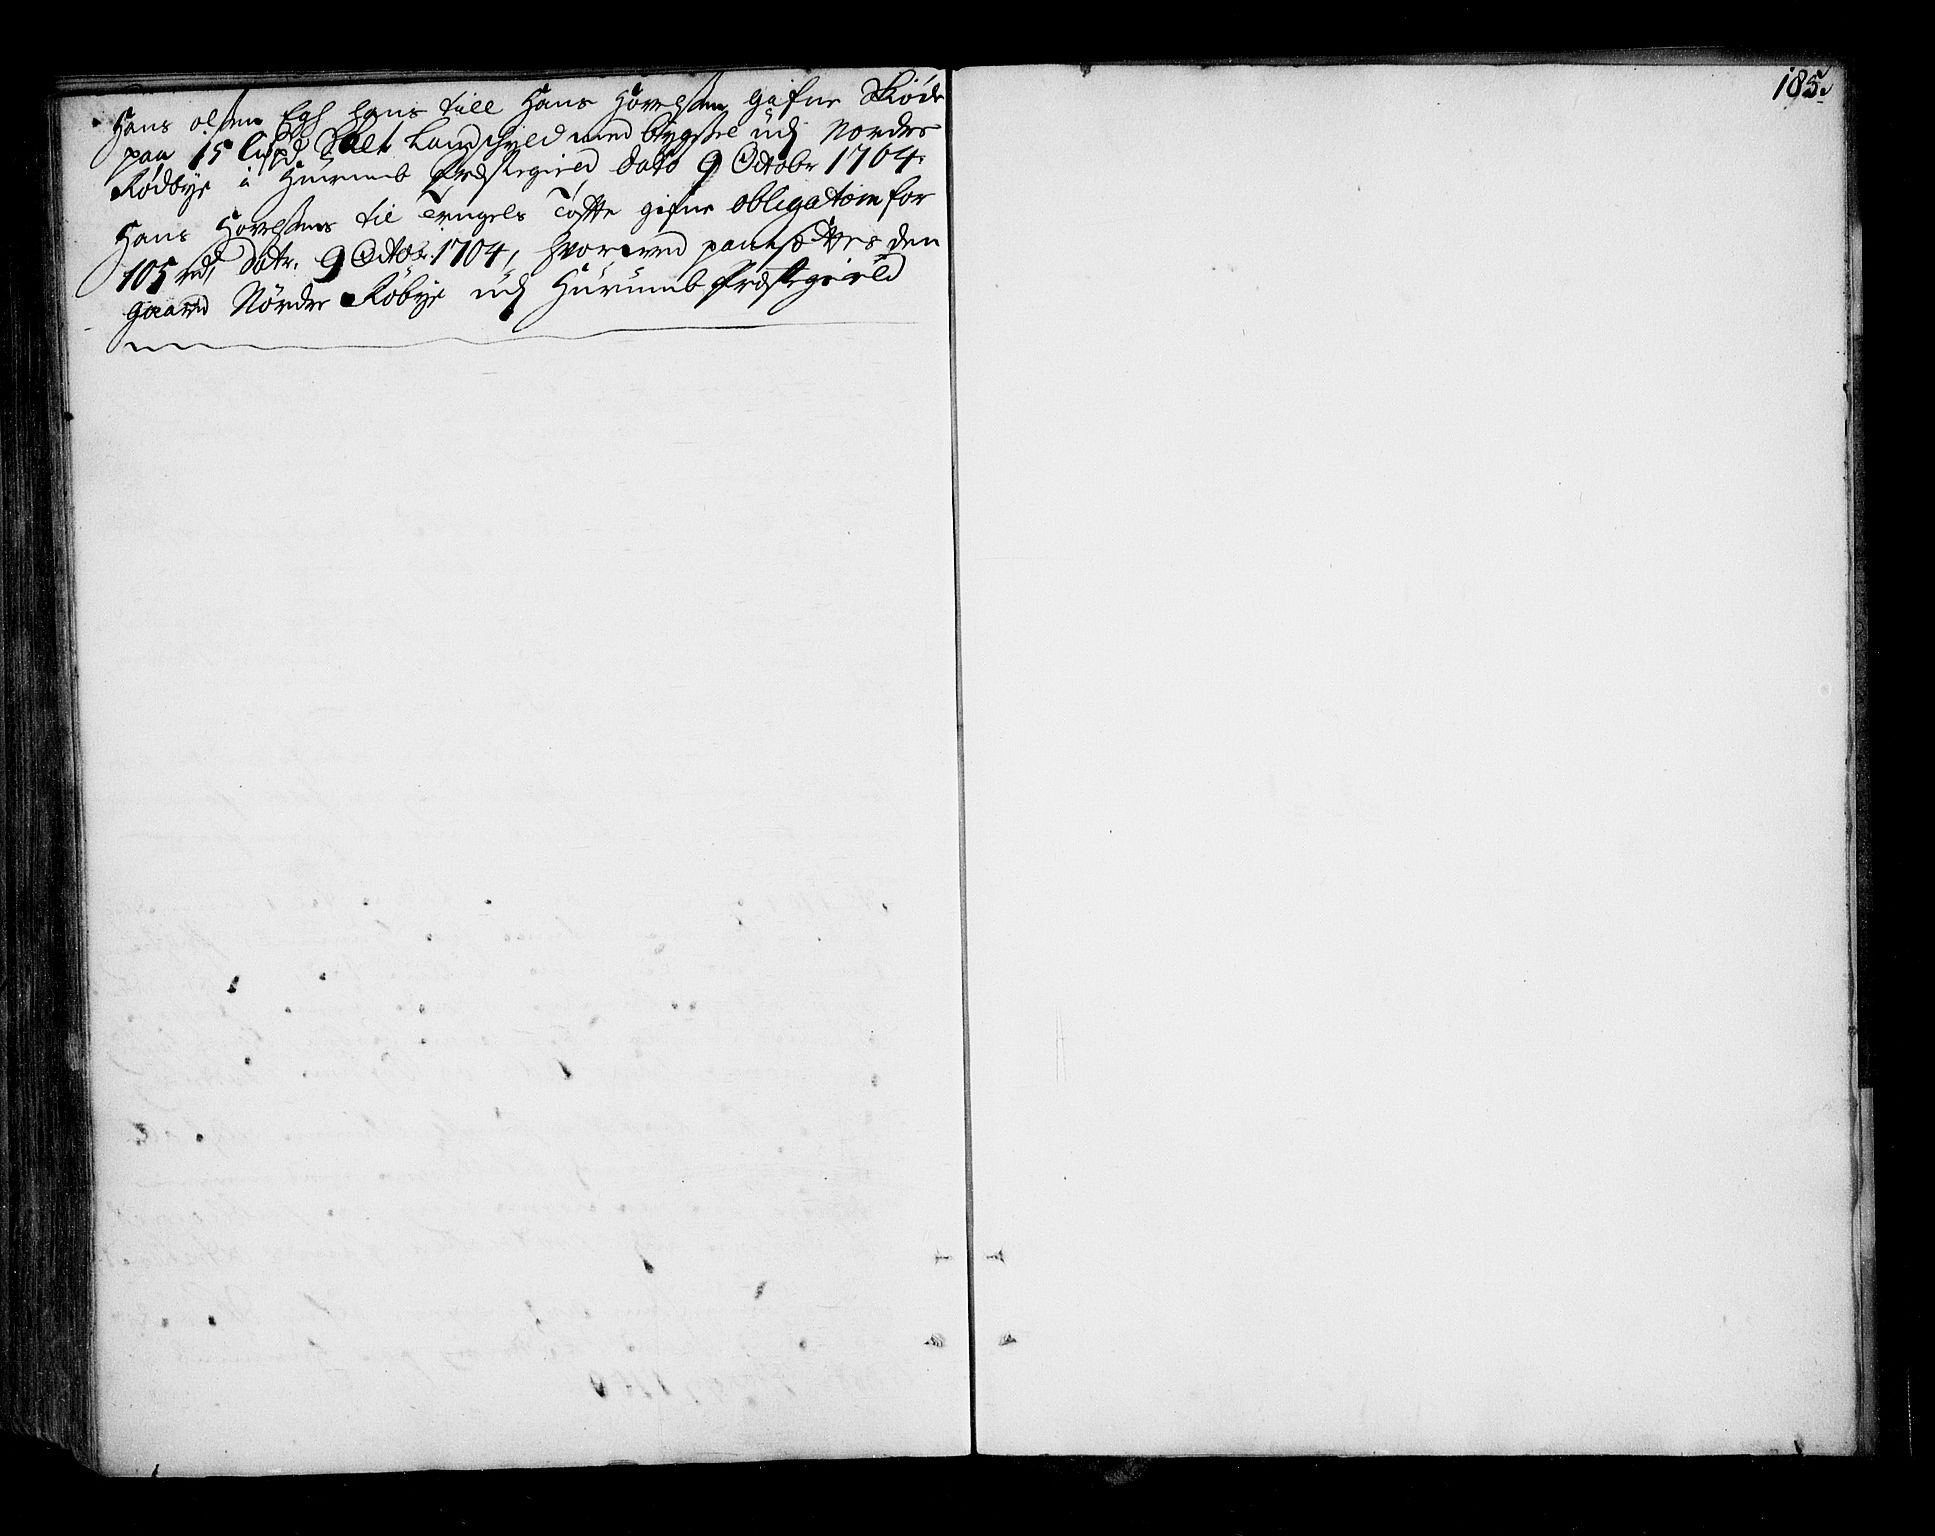 Hans olsen Egh hans till Hans Hovelsen gifne Skiöde
paa 15 lispd Salt Landschyld med bygsel udj Nordre
Rödbye i Hurumb Præstegield dato 9 Octobr 1704.
Hans Hovelsens til Engels Tofte gifne obligation for
105 rd, datr. 9 Octobr. 1704, hvorved pantsættes den
gaard Nördre Röbye udj Hurumb Præstegield
185.